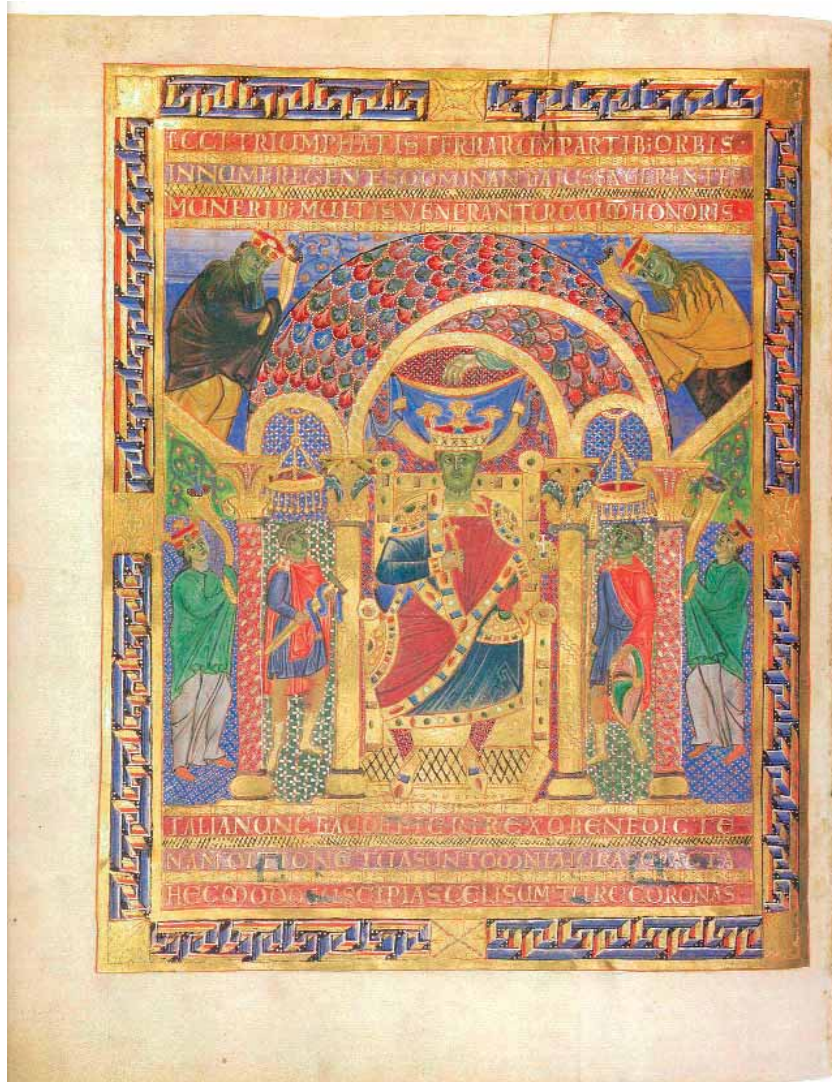 ECCE TRIUMPHATIS TERRARUM PARTIB; ORBIS ·
INNUMERE GENTES DOMINANTIA IUSSA GERENTES
MUNERIB; MULTIS VENERANTUR CULM̅ HONORIS ·
TALIA NUNC GAUDE FIERI REX O BENEDICTE
NAM DITIONE TUA SUNT OMNIA IURA
HEC MODO SUSCIPIAS CELI SUMTURE CORONAS ·